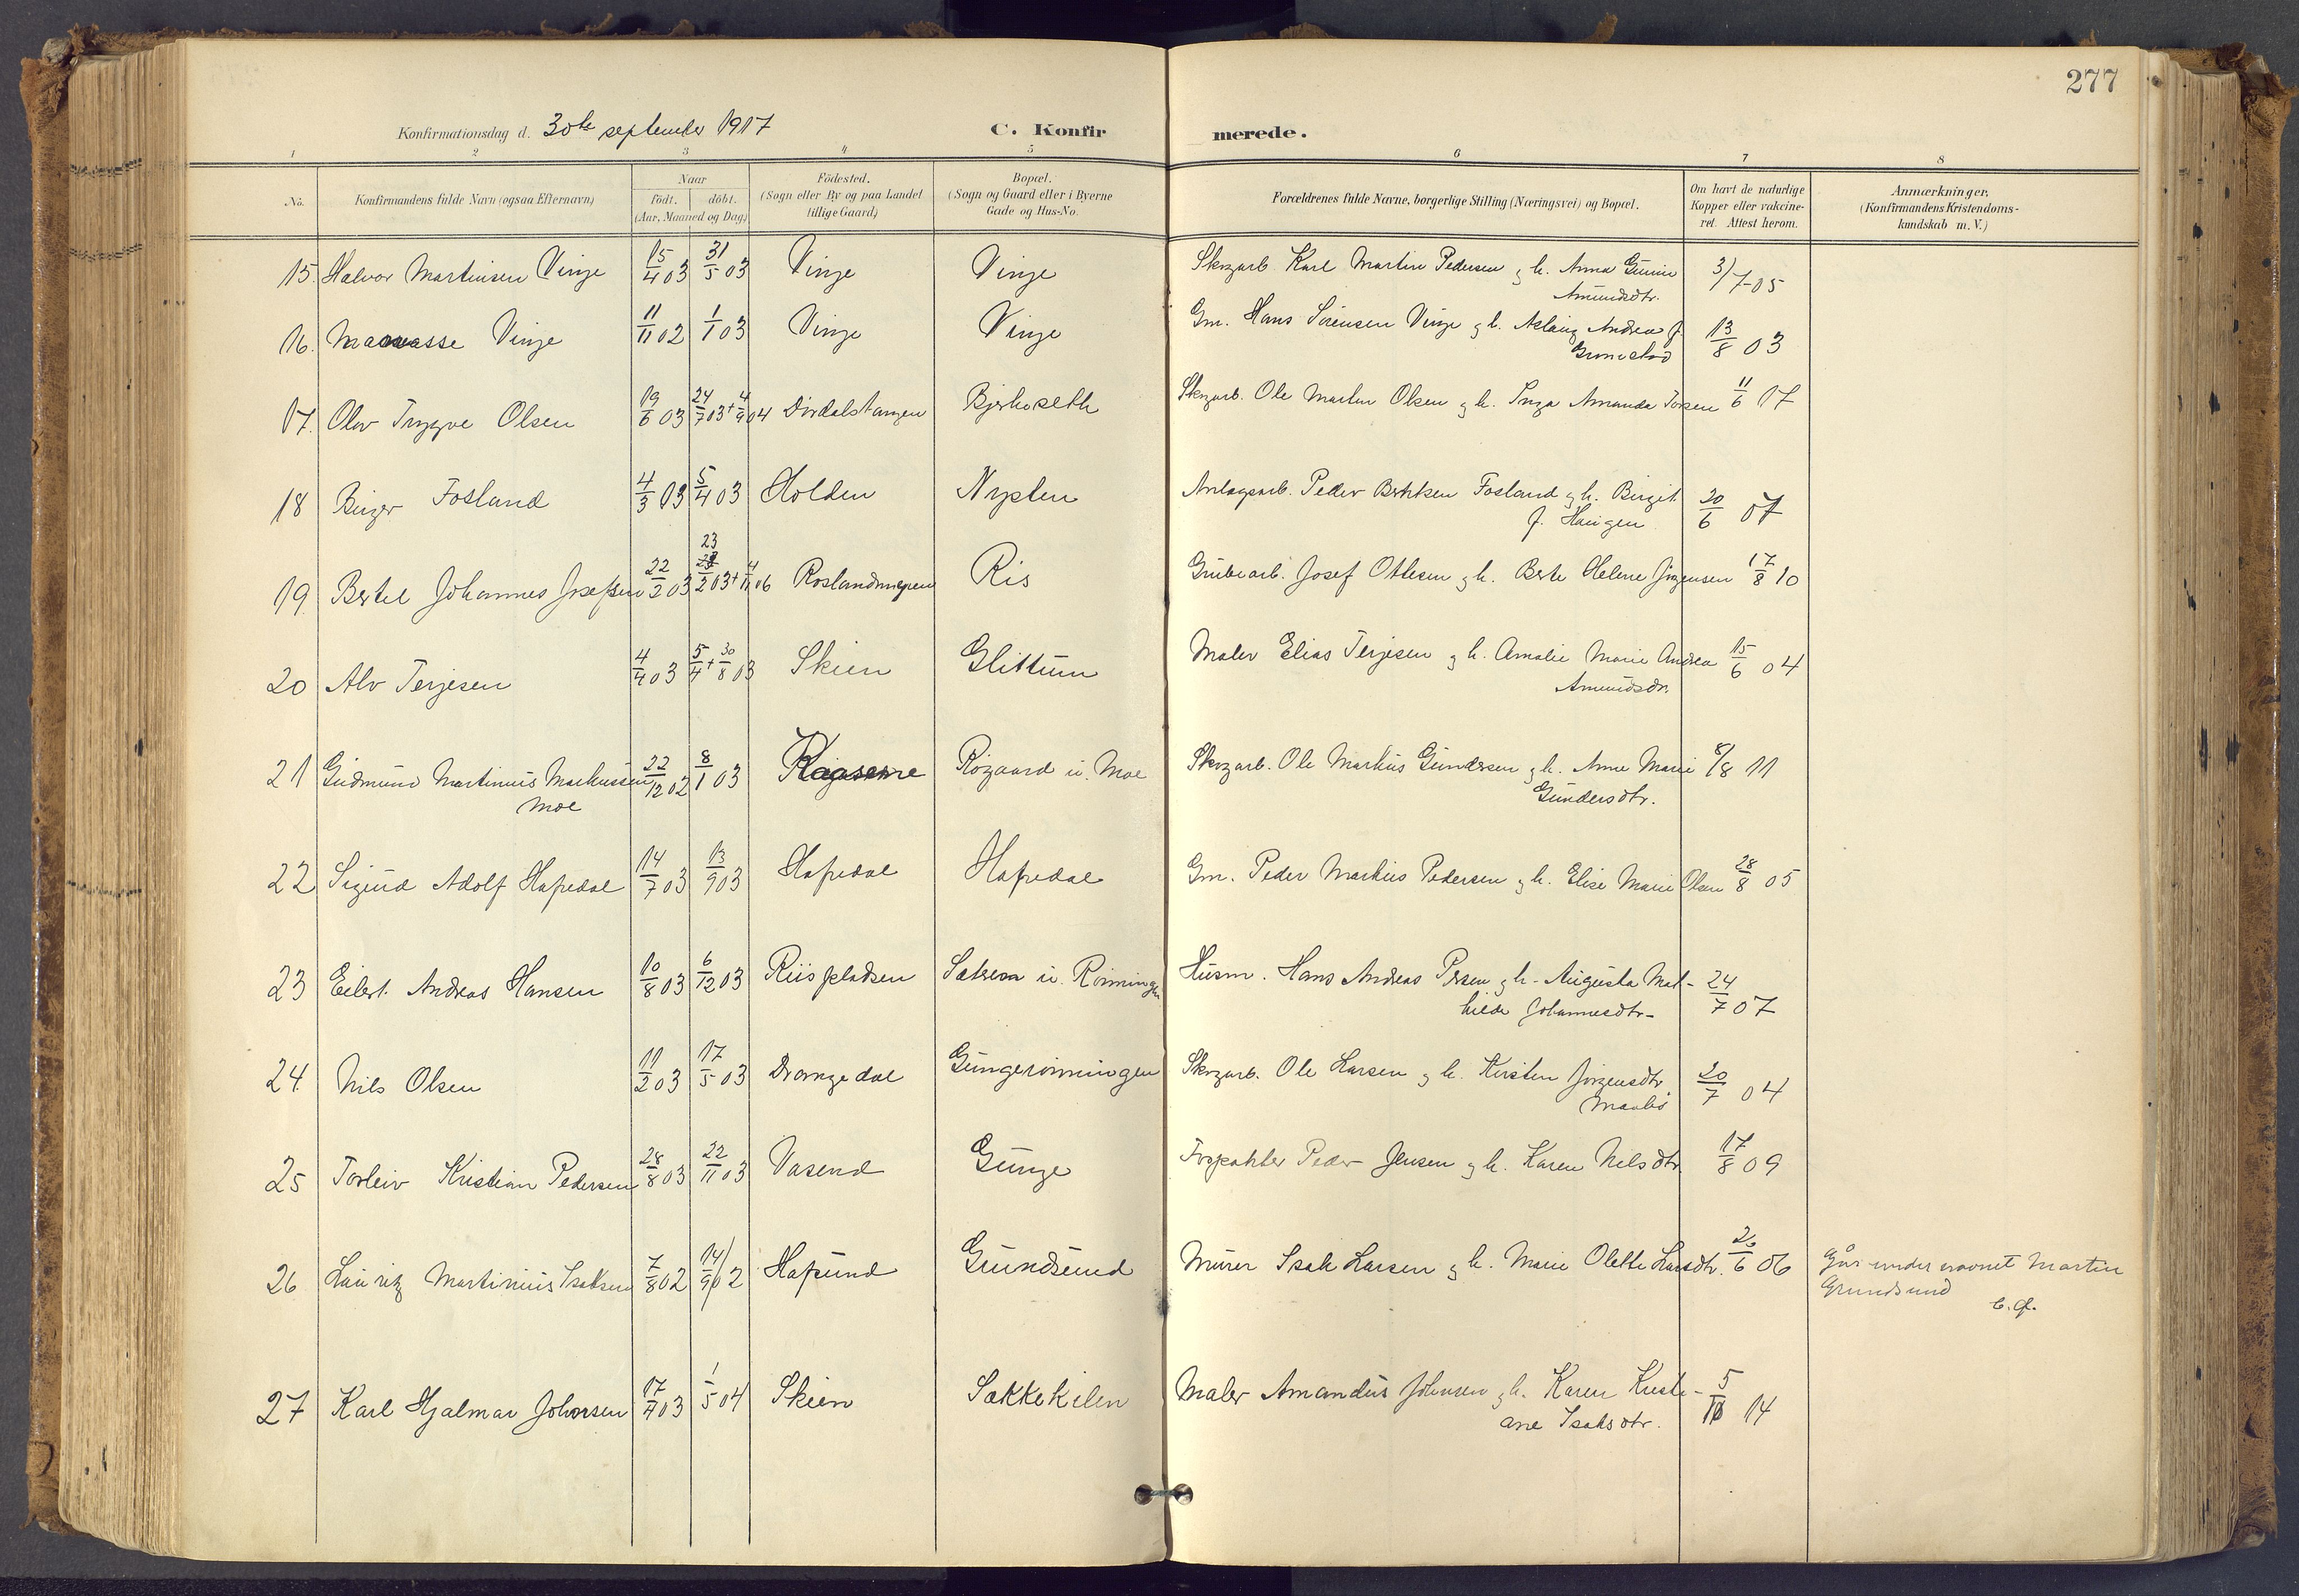 277
Konfirmationsdag d. 30te september 1917
C. Konfirmerede.
1 2 3 4 5 6 7 8
No.
Konfirmandens fulde Navn (ogsaa Efternavn)
Naar
født. døbt.
(Aar, Maaned og Dag)
Fødested.
(Sogn eller By og paa Landet
tillige Gaard)
Bopæl.
(Sogn og Gaard eller i Byerne
Gade og Hus-No.
Forældrenes fulde Navne, borgerlige Stilling (Næringsvei) og Bopæl.
Om havt de naturlige
Kopper eller vakcine-
ret. Attest herom.
Anmærkninger.
(Konfirmandens Kristendoms-
kundskab m. V.)
15. Halvor Martinsen Vinje 15/4 03 31/5 03 Vinje Vinje Skogarb. Karl Martin Pedersen og h. Anna Gurine 3/7-05
Amundsdtr.
16. Manasse Vinje 11/11 02 1/1 03 Vinje Vinje Gm. Hans Sörensen Vinje og h. Aslaug Andrea f. 13/8 03
Grimestad
17. Olav Trygve Olsen 19/6 03 24/7 03 + 4/9 04 Dirdalstangen Bjerkeseth Skogarb. Ole Martin Olsen og h. Inga Amanda 11/6 17
18 Birger Fosland 4/3 03 5/4 03 Holden Nysten Anlagsarb. Peder Fosland og h. Birgit 20/6 07
f. Haugen
23
19. Bertel Johannes Josefsen 22/2 03 2/2 03 + 4/11 06 Ris Grubearb. Josef Ottesen og h. Berte Helene Jørgensen 17/8 10
20 Alv Terjesen 4/4 03 5/4 + 30/8 03 Skien Glittum Maler Elias Terjesen og h. Amalie Marie Andrea 15/6 04
Amundsdtr.
21 Gudmund Martinius Markussen 22/12 02 8/1 03 Rogaard u. Moe Skogarb. Ole Markus Gundersen og h. Anne Marie 8/8 11
Moe Gundersdtr.
22 Sigurd Adolf Hafredal 14/7 03 13/9 03 Hafredal Hafredal Gm. Peder Markus Pedersen og h. Elise Marie Olsen 28/8 05
23 Eilert Andreas Hansen 10/8 03 6/12 03 Riispladsen Sætren u. Rønningen Husm. Hans Andreas Persen og h. Augusta Mat- 24/7 07
hilde Johannesdtr-
24. Nils Olsen 11/2 03 17/5 03 Drangedal Gungerønningen Skogarb. Ole Larsen og h. Kirsten Jørgensdtr. 20/7 04
25 Torleiv Kristian Pedersen 28/8 03 22/11 03 Vasend Gunge Forpakter Peder Jensen og h. Karen Nelsdtr. 17/8 09
26 Lauritz Martinius Isaksen 7/8 02 14/9 02 Hafsund Grundsund Murer Isak Larsen og h. Marie Olette Larsdtr. 26/6 06 Går under navnet Martin
Grundsund
27 Karl Hjalmar Johnsen 17/4 03 1/5 04 Skien Sækkekilen Maler Amandus Johnsen og h. Karen Kristi- 5/10 14
ane Isaksdtr.